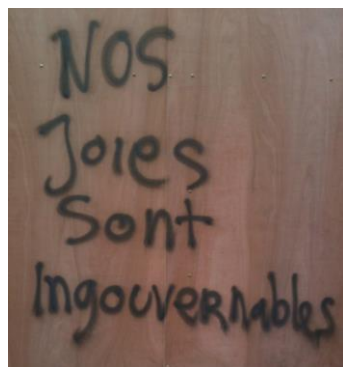 NOS
Joies
Sont
Ingouvernables